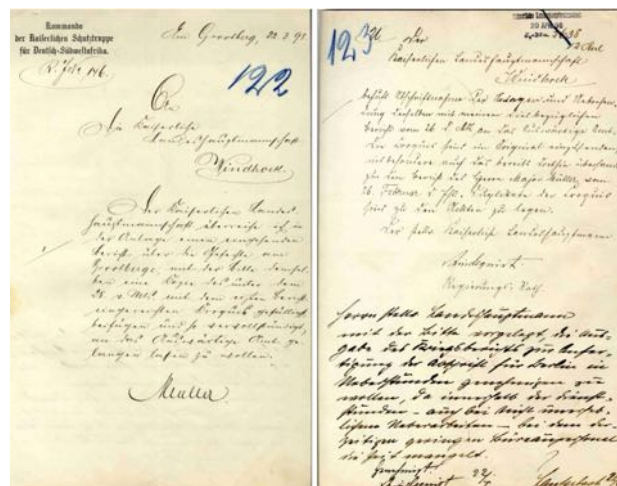 Kommando
der Kaiserlichen Schutztruppe
für Deutsch-Südwestafrika.
J. No 146.
Am Grootberg, 22. 3. 98.
122
An
die Kaiserliche
Landeshauptmannschaft
Windhoek.
Der Kaiserlichen Landes
hauptmannschaft überreiche ich in
der Anlage einen eingehenden
Bericht über die Gefechte am
Grootberge, mit der Bitte demsel-
ben eine Kopie des unter dem
28. v. Mts. mit dem ersten Bericht
eingereichten Croquis gefälligst
beifügen und so vervollständigt,
an das Auswärtige Amt ge-
langen lassen zu wollen.
Mueller
123
29 APR. 98
Der
Kaiserlichen Landeshauptmannschaft
Windhoek
behufs Abschriftnahme der Anlagen und Uebersen-
dung derselben mit meinem diesbezüglichen
Bericht vom 26. d. Mts. an das Auswärtige Amt.
Die Croquis sind im Original einzusenden,
zu dem Bericht des Herrn Major Müller vom
26. Februar d. Js. Duplikate der Croquis
sind zu den Akten zu legen.
Der stellv. Kaiserliche Landeshauptmann
Lindequist.
Regierungs-Rath.
Herrn stellv. Landeshauptmann
mit der Bitte vorgelegt, die Aus-
gabe des Kriegsberichts zur Anfer-
tigung der Abschrift für Berlin in
Ueberstunden genehmigen zu
wollen, da innerhalb der Dienst-
stunden – auch bei nicht unerheb-
lichen Ueberarbeiten – bei dem der-
zeitigen geringen Büreaupersonal
die Zeit mangelt.
Genehmigt.
Lindequist